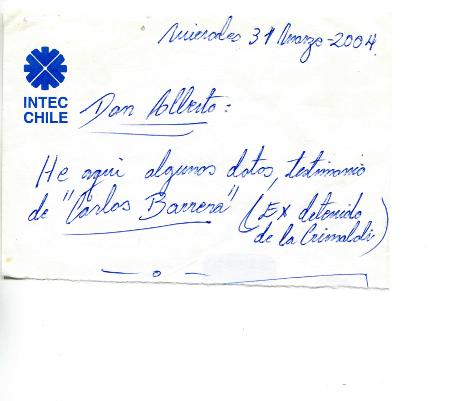 Miercoles 31 Marzo-2004.
INTEC
CHILE
Don Alberto:
He aqui algunos datos, testimonio
de "Carlos Barrera" (Ex detenido
de la Grimaldi)